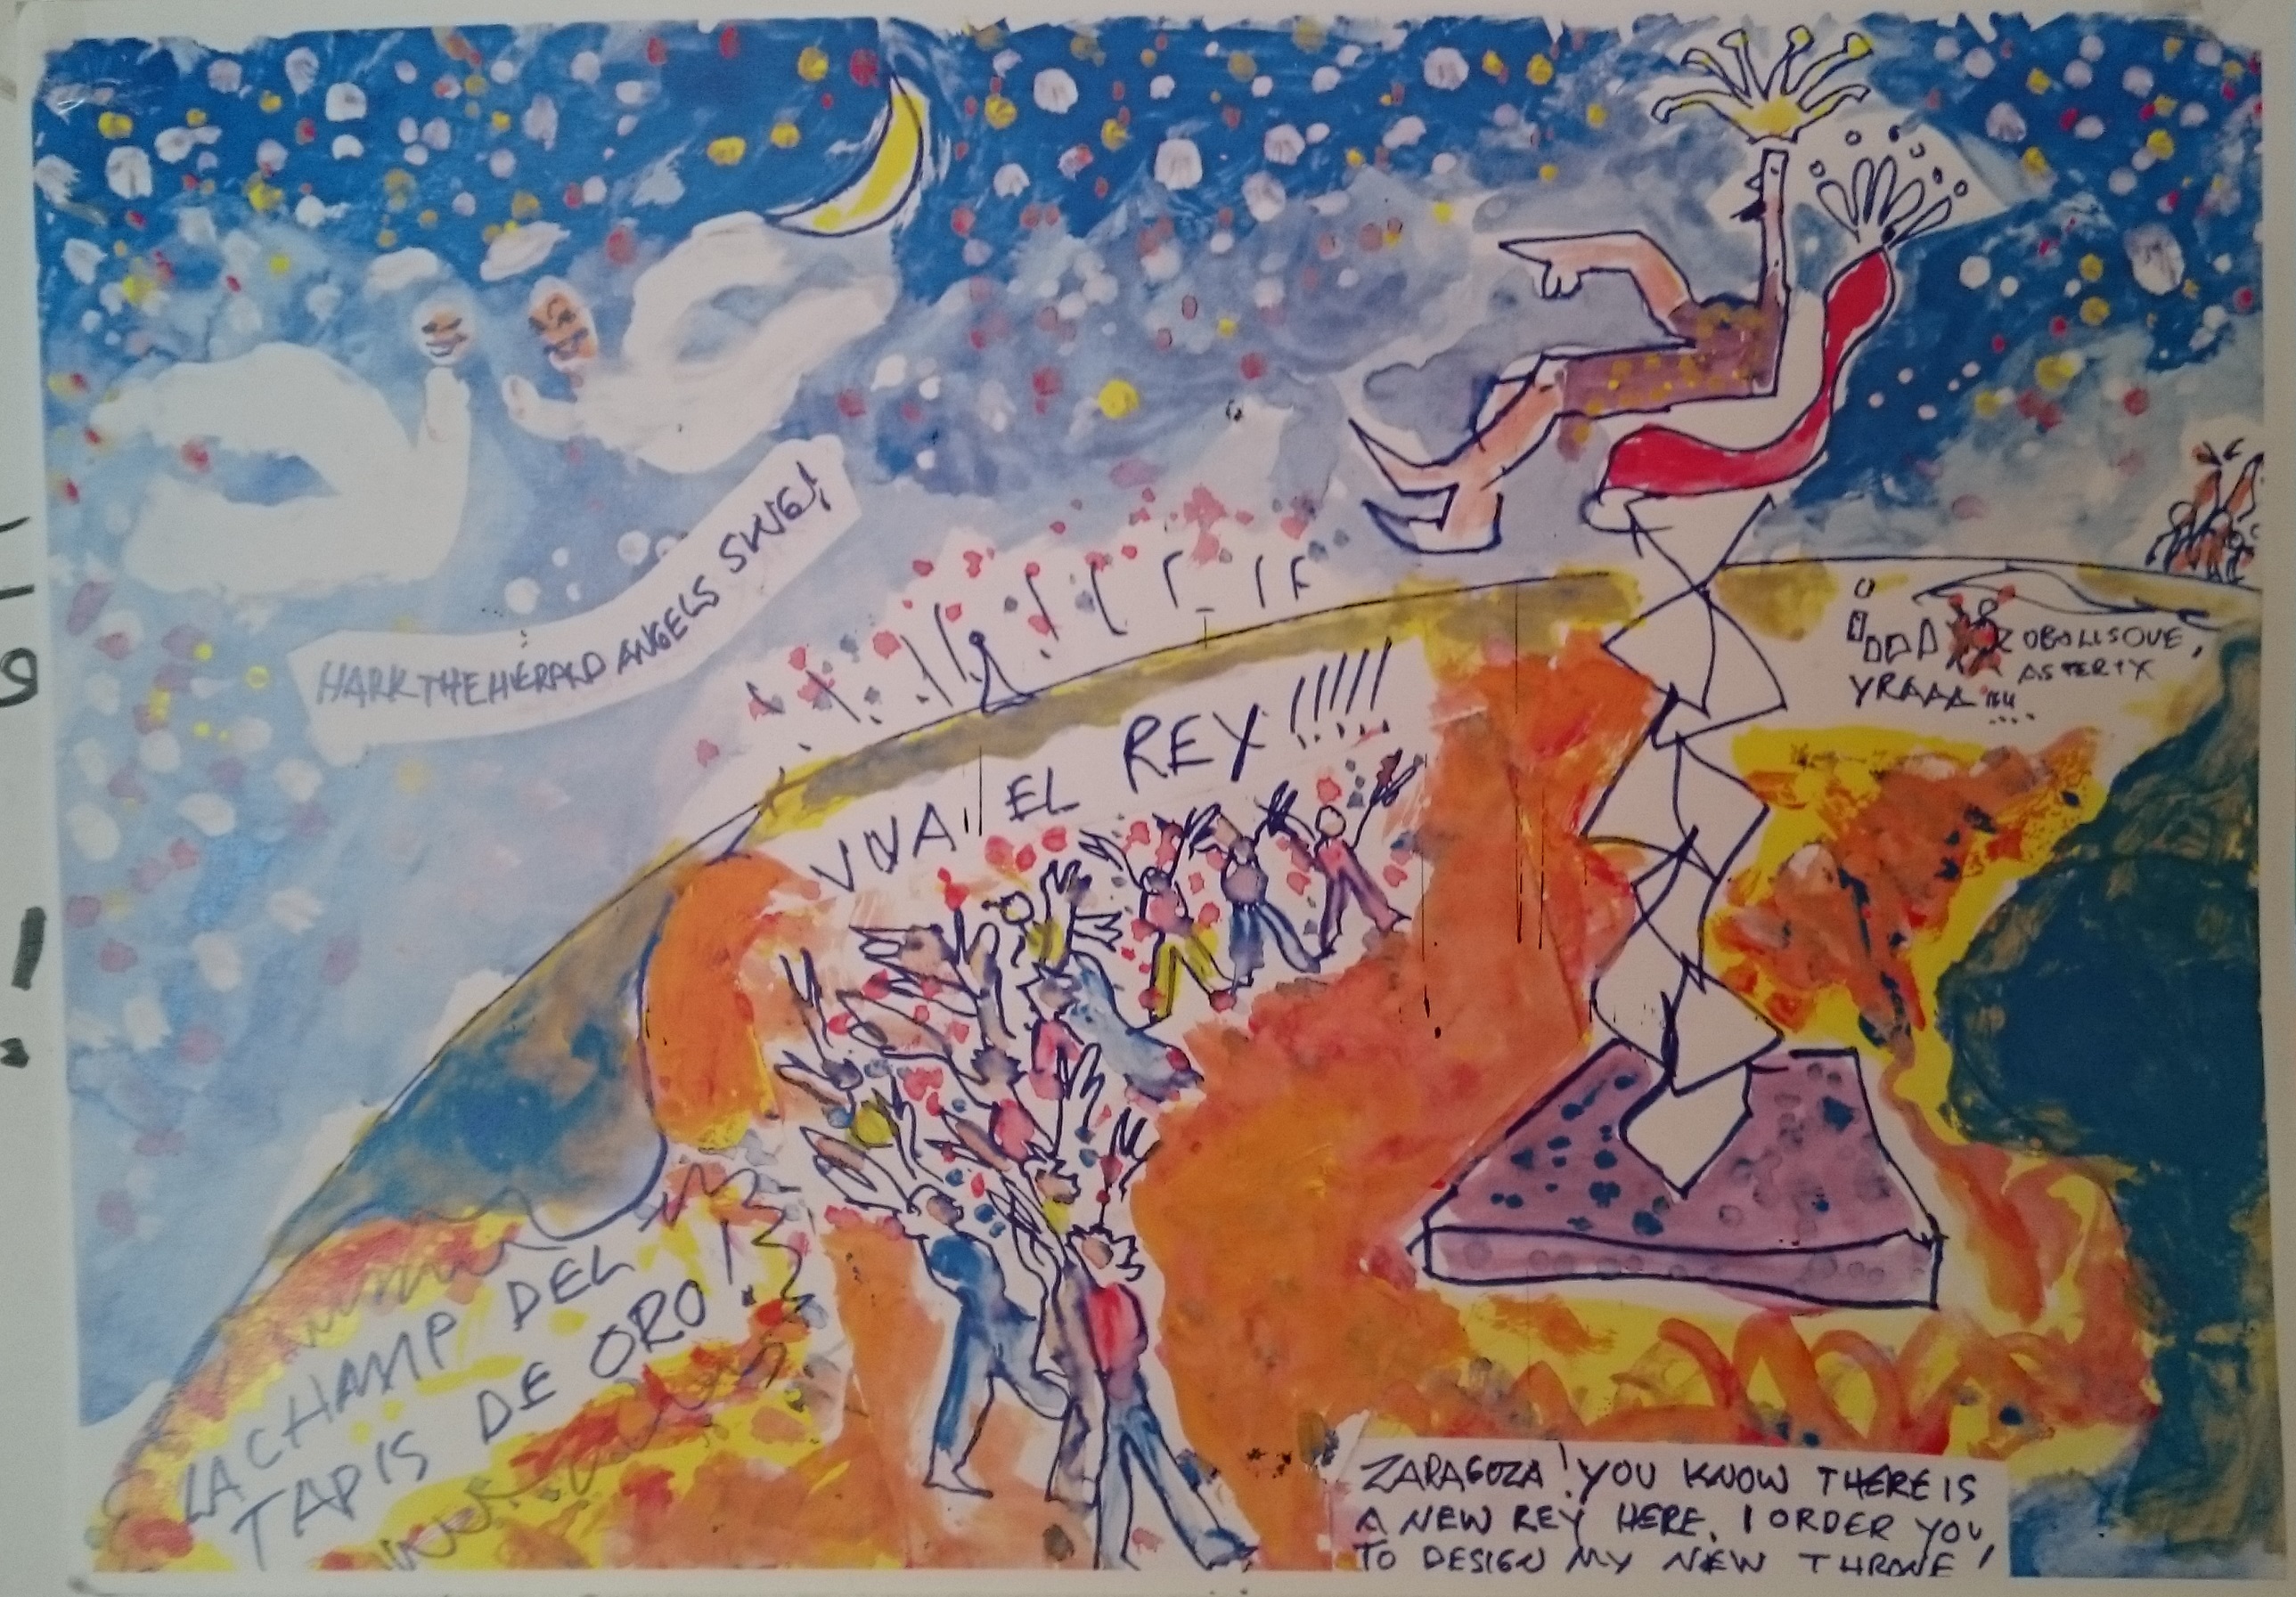 HARK THE HERALD ANGELS SING!
VIVA EL REY!!!!!
OBOLLSOUE,
ASTERIX
YRAAA
LA CHAMP DEL
TAPIS DE ORO!
ZARAGOZA! YOU KNOW THERE IS
A NEW REY HERE. I ORDER YOU,
TO DESIGN MY NEW THRONE!